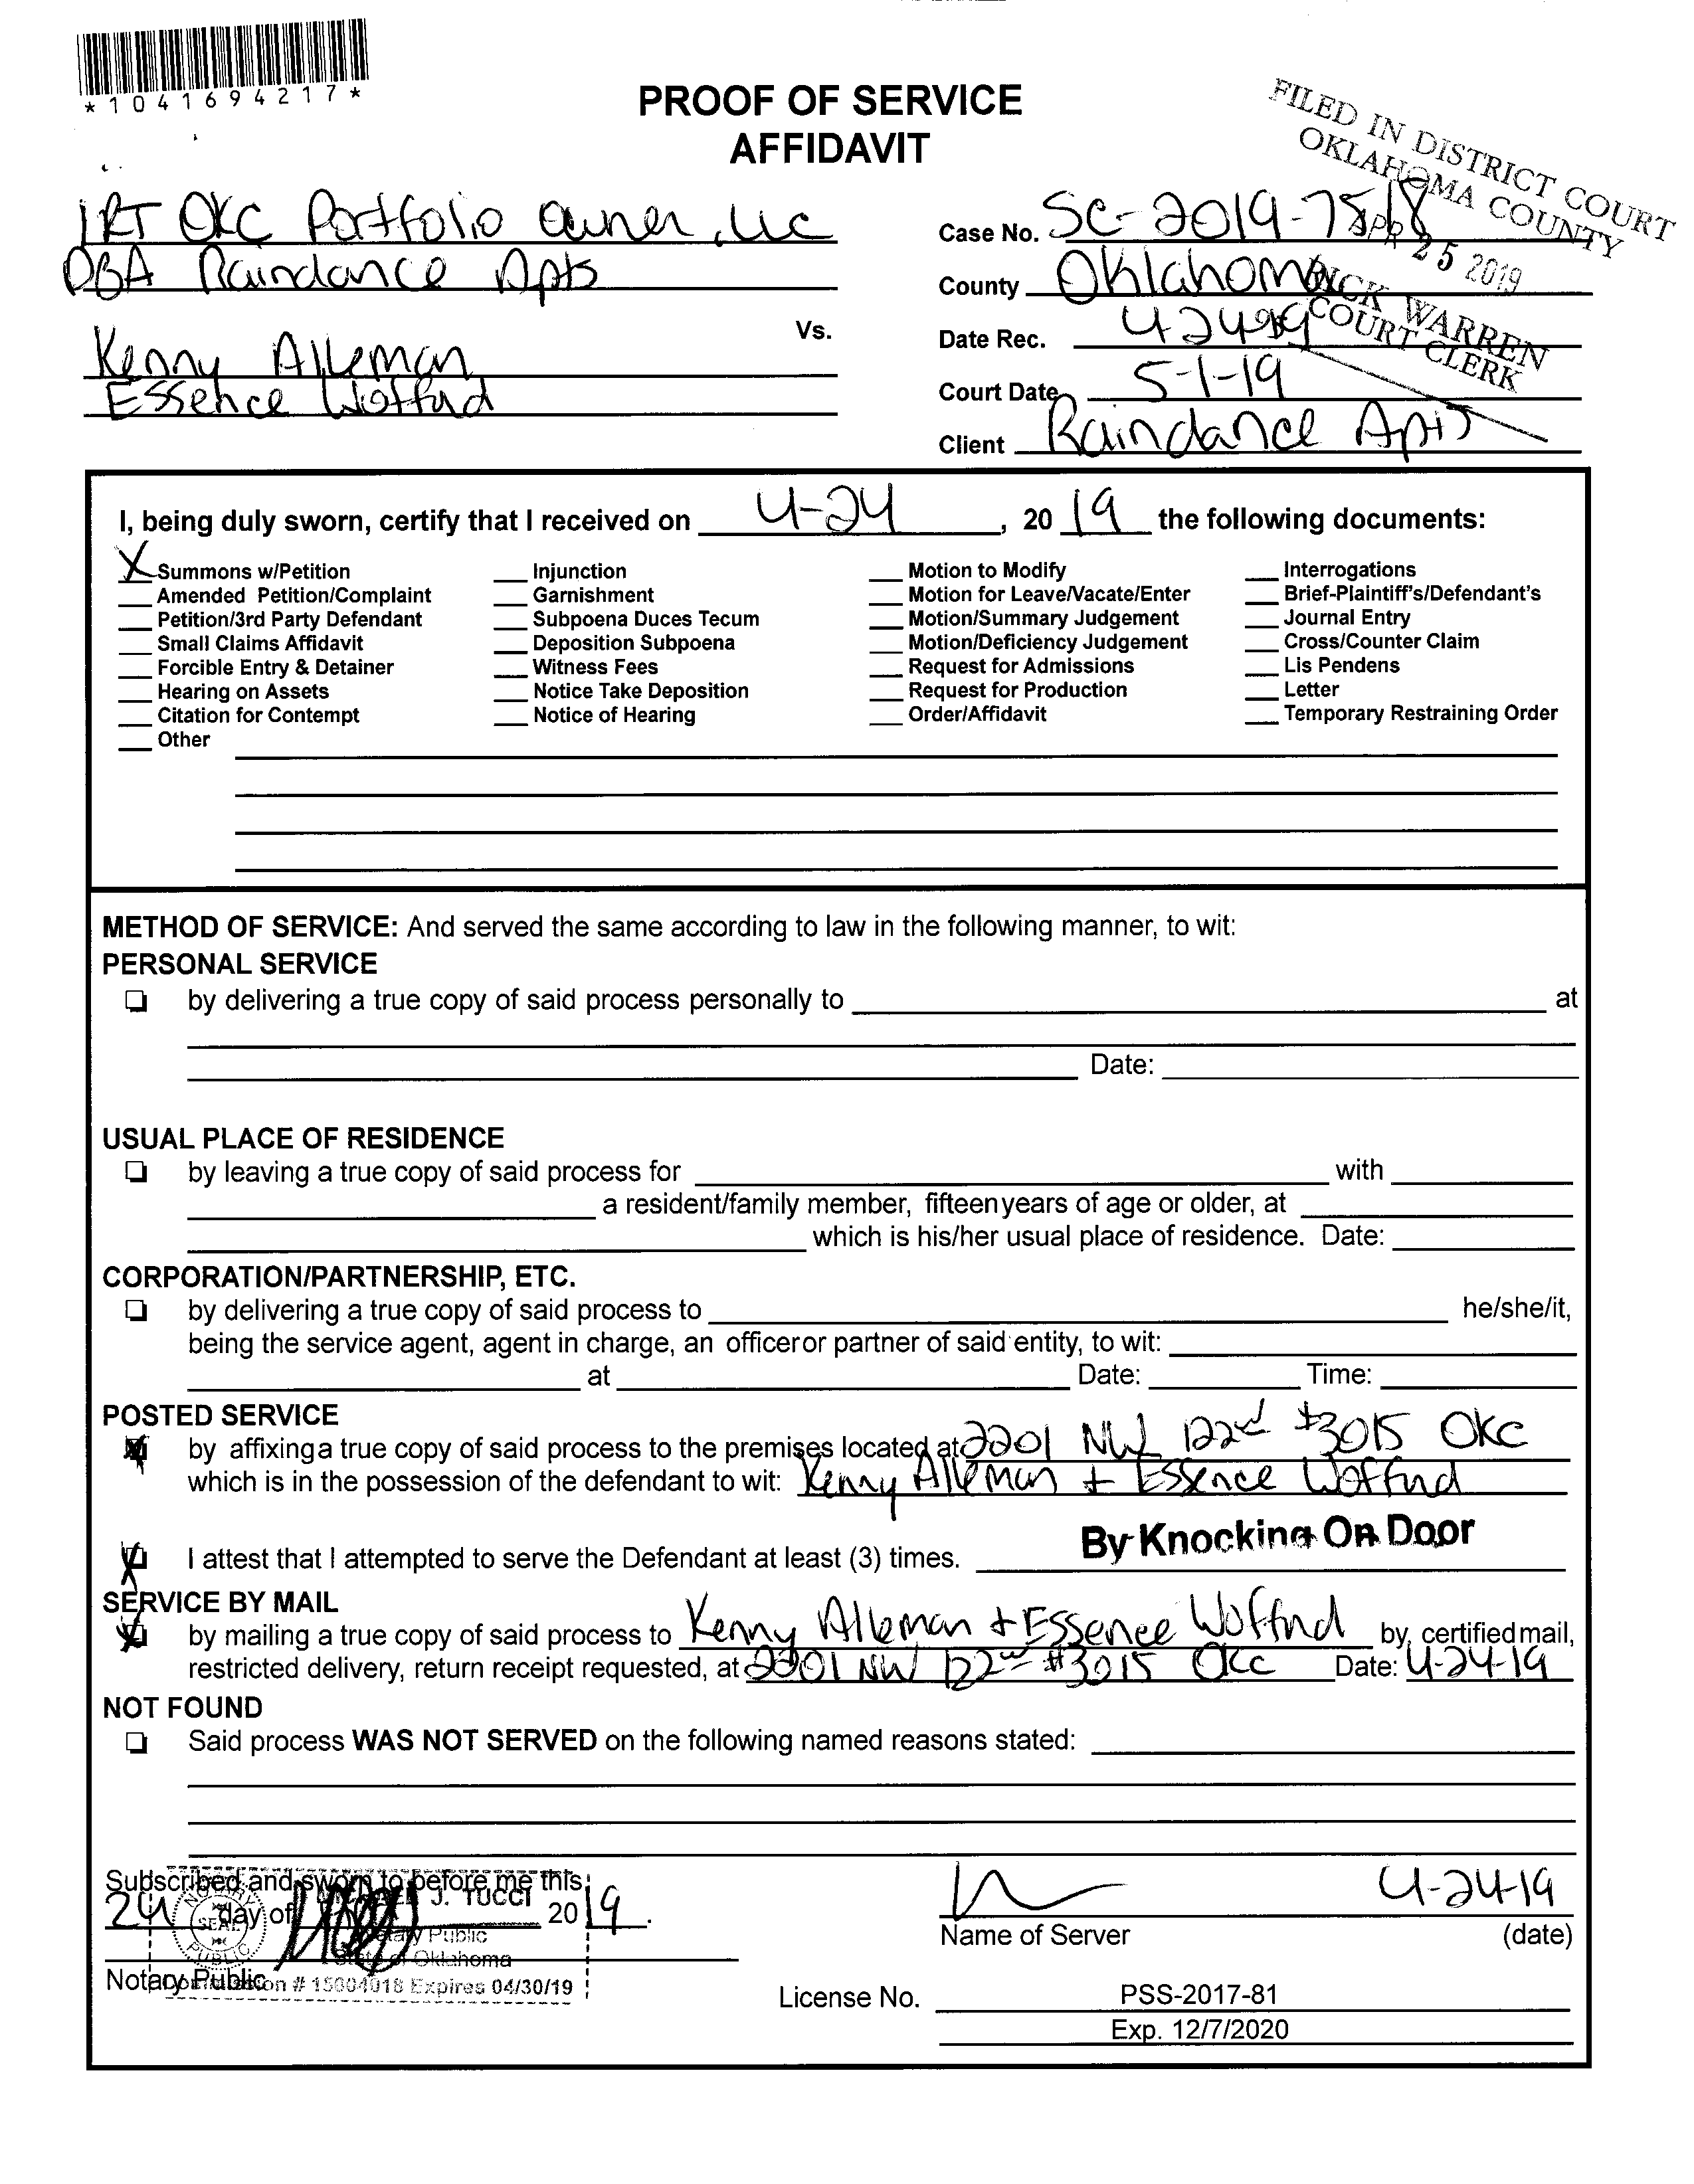 *1041694217*
PROOF OF SERVICE
AFFIDAVIT
FILED IN DISTRICT COURT
OKLAHOMA COUNTY
APR 25 2019
RICK WARREN
COURT CLERK
IRT OKC Portfolio Owner, LLC
DBA Raindance Apts
Vs.
Kenny Alleman
Essence Wofford
Case No. SC-2019-7518
County Oklahoma
Date Rec. 4-24-19
Court Date 5-1-19
Client Raindance Apts
I, being duly sworn, certify that I received on 4-24, 20 19 the following documents:
X Summons w/Petition ___ Injunction ___ Motion to Modify ___ Interrogations
___ Amended Petition/Complaint ___ Garnishment ___ Motion for Leave/Vacate/Enter ___ Brief-Plaintiff's/Defendant's
___ Petition/3rd Party Defendant ___ Subpoena Duces Tecum ___ Motion/Summary Judgement ___ Journal Entry
___ Small Claims Affidavit ___ Deposition Subpoena ___ Motion/Deficiency Judgement ___ Cross/Counter Claim
___ Forcible Entry & Detainer ___ Witness Fees ___ Request for Admissions ___ Lis Pendens
___ Hearing on Assets ___ Notice Take Deposition ___ Request for Production ___ Letter
___ Citation for Contempt ___ Notice of Hearing ___ Order/Affidavit ___ Temporary Restraining Order
___ Other
METHOD OF SERVICE: And served the same according to law in the following manner, to wit:
PERSONAL SERVICE
❏ by delivering a true copy of said process personally to ___ at
Date:
USUAL PLACE OF RESIDENCE
❏ by leaving a true copy of said process for ___ with ___
___ a resident/family member, fifteen years of age or older, at ___
___ which is his/her usual place of residence. Date: ___
CORPORATION/PARTNERSHIP, ETC.
❏ by delivering a true copy of said process to ___ he/she/it,
being the service agent, agent in charge, an officer or partner of said entity, to wit: ___
___ at ___ Date: ___ Time: ___
POSTED SERVICE
X by affixing a true copy of said process to the premises located at 2201 NW 122nd #3015 OKC
which is in the possession of the defendant to wit: Kenny Alleman + Essence Wofford
X I attest that I attempted to serve the Defendant at least (3) times. By Knocking On Door
SERVICE BY MAIL
X by mailing a true copy of said process to Kenny Alleman + Essence Wofford by, certified mail,
restricted delivery, return receipt requested, at 2201 NW 122nd #3015 OKC Date: 4-24-19
NOT FOUND
❏ Said process WAS NOT SERVED on the following named reasons stated: ___
Subscribed and sworn to before me this
24 day of ___ 20 19.
J. TUCCI
NOTARY PUBLIC SEAL
Notary Public
State of Oklahoma
Commission # 15004018 Expires 04/30/19
Notary Public
4-24-19
Name of Server (date)
License No. PSS-2017-81
Exp. 12/7/2020